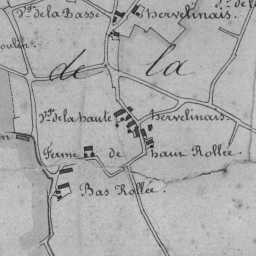 Vge de la Basse Hervelinais.
de la
Vge de la haute Hervelinais.
Ferme de haut Rollée.
Bas Rollée